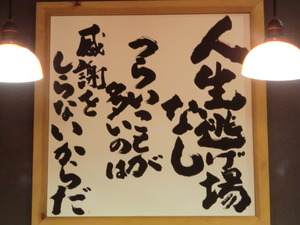 人生逃げ場
なし
つらいことが
多いのは
感謝を
しらないからだ